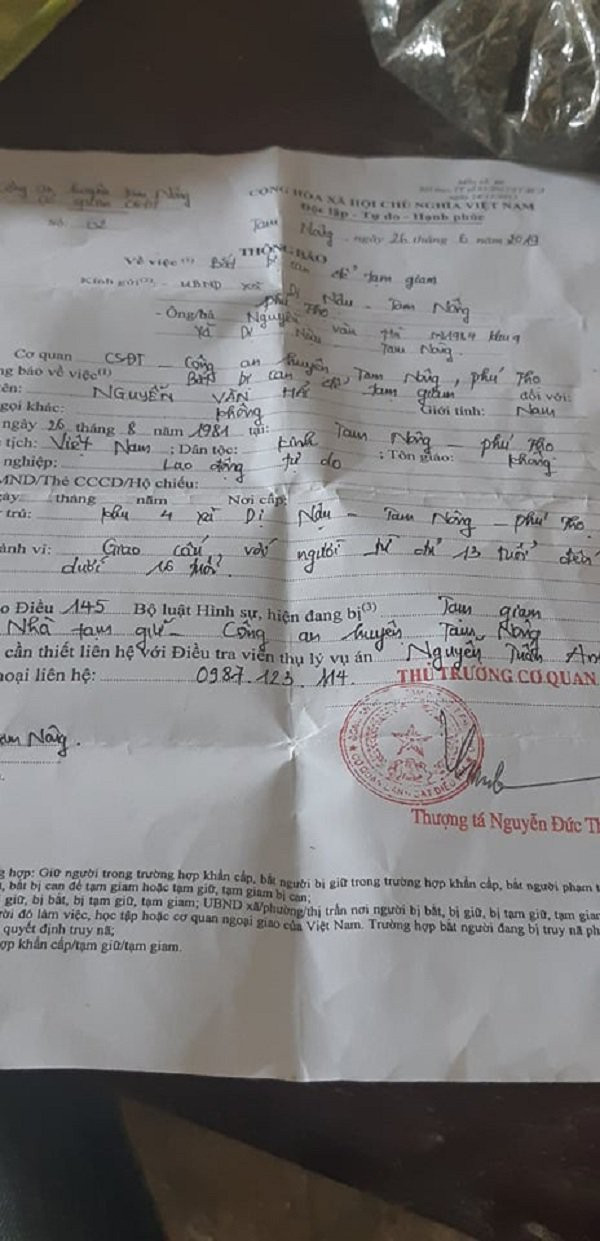 Công an huyện Tam Nông
CQ CSĐT
Số:
CỘNG HÒA XÃ HỘI CHỦ NGHĨA VIỆT NAM
Độc lập - Tự do - Hạnh phúc
Tam Nông, ngày 26 tháng 6 năm 2019
THÔNG BÁO
Về việc(1) Bắt bị can để tạm giam
Kính gửi(2): - UBND xã Dị Nậu - Tam Nông
phú Thọ
- Ông/bà Nguyễn văn khu 4
xã Dị Nậu Tam Nông.
Cơ quan CSĐT - Công an huyện Tam Nông, phú Thọ
ng báo về việc(1) Bắt bị can để tạm giam đối với:
ên: NGUYỄN VĂN Giới tính: Nam
gọi khác: không
ngày 26 tháng 8 năm 1981 tại: Tam Nông - phú Thọ
tịch: Việt Nam; Dân tộc: kinh; Tôn giáo: không
nghiệp: Lao động tự do
MND/Thẻ CCCD/Hộ chiếu:
gày tháng năm Nơi cấp:
trú: khu 4 xã Dị Nậu - Tam Nông - phú Thọ
ành vi: Giao cấu với người từ đủ 13 tuổi đến
dưới 16 tuổi.
o Điều 145 Bộ luật Hình sự, hiện đang bị(3) Tạm giam
Nhà tạm giữ - Công an huyện Tam Nông
cần thiết liên hệ với Điều tra viên thụ lý vụ án Nguyễn Tuấn An
hoại liên hệ: 0987.123.114.
THỦ TRƯỞNG CƠ QUAN
am Nông.
Thượng tá Nguyễn Đức Th
g hợp: Giữ người trong trường hợp khẩn cấp, bắt người bị giữ trong trường hợp khẩn cấp, bắt người phạm t
, bắt bị can để tạm giam hoặc tạm giữ, tạm giam bị can;
giữ, bị bắt, bị tạm giữ, tạm giam; UBND xã/phường/thị trấn nơi người bị bắt, bị giữ, bị tạm giữ, tạm gia
ời đó làm việc, học tập hoặc cơ quan ngoại giao của Việt Nam. Trường hợp bắt người đang bị truy nã ph
quyết định truy nã;
ợp khẩn cấp/tạm giữ/tạm giam.